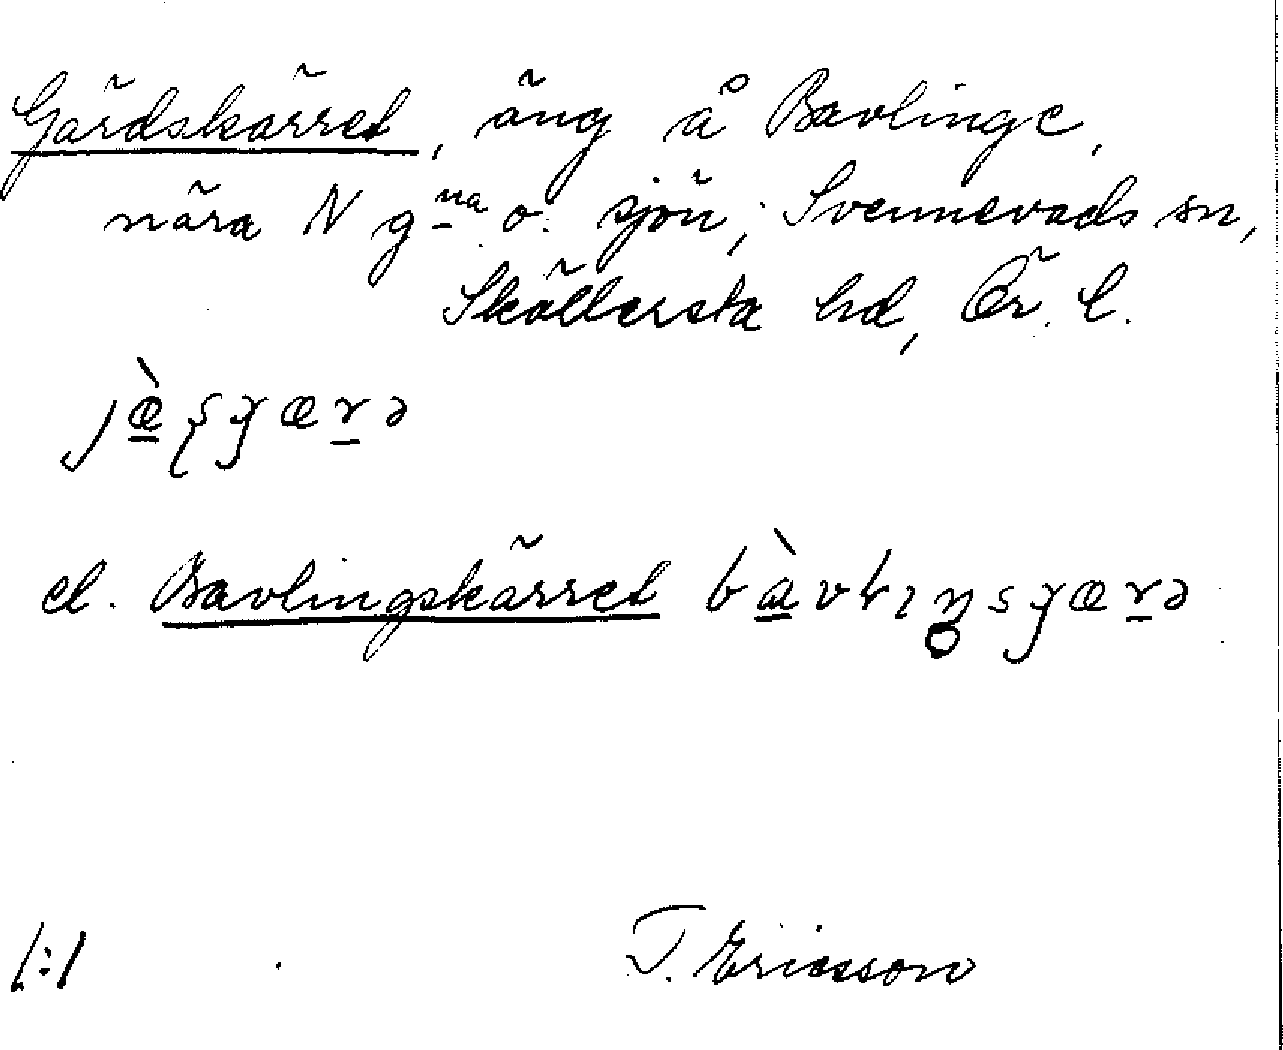 Gärdskärret, äng å Bavlinge,
nära N gna o. sjön, Svennevads sn,
Sköllersta hd, Ör. l.
el. Bavlingskärret
1:1
T. Ericsson